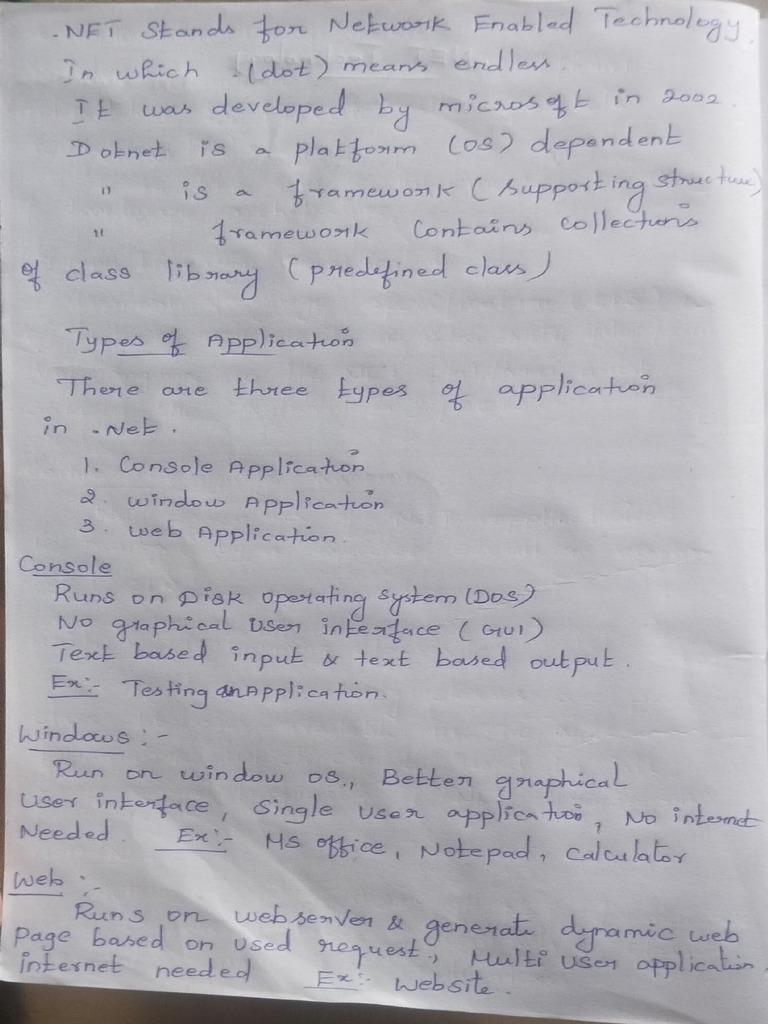 .NET Stands for Network Enabled Technology.
In which .(dot) means endless.
It was developed by microsoft in 2002.
Dotnet is a platform (OS) dependent
" is a framework (supporting structure)
" framework contains collections
of class library (predefined class)
Types of Application
There are three types of application
in .Net.
1. Console Application
2. window Application
3. web Application.
Console
Runs on Disk operating system (DOS)
No graphical user interface (GUI)
Text based input & text based output.
Ex:- Testing an Application.
Windows :-
Run on window os., Better graphical
user interface, single user application, No internet
Needed. Ex:- MS office, Notepad, calculator
Web :-
Runs on webserver & generate dynamic web
Page based on used request., Multi user application,
internet needed Ex:- website.